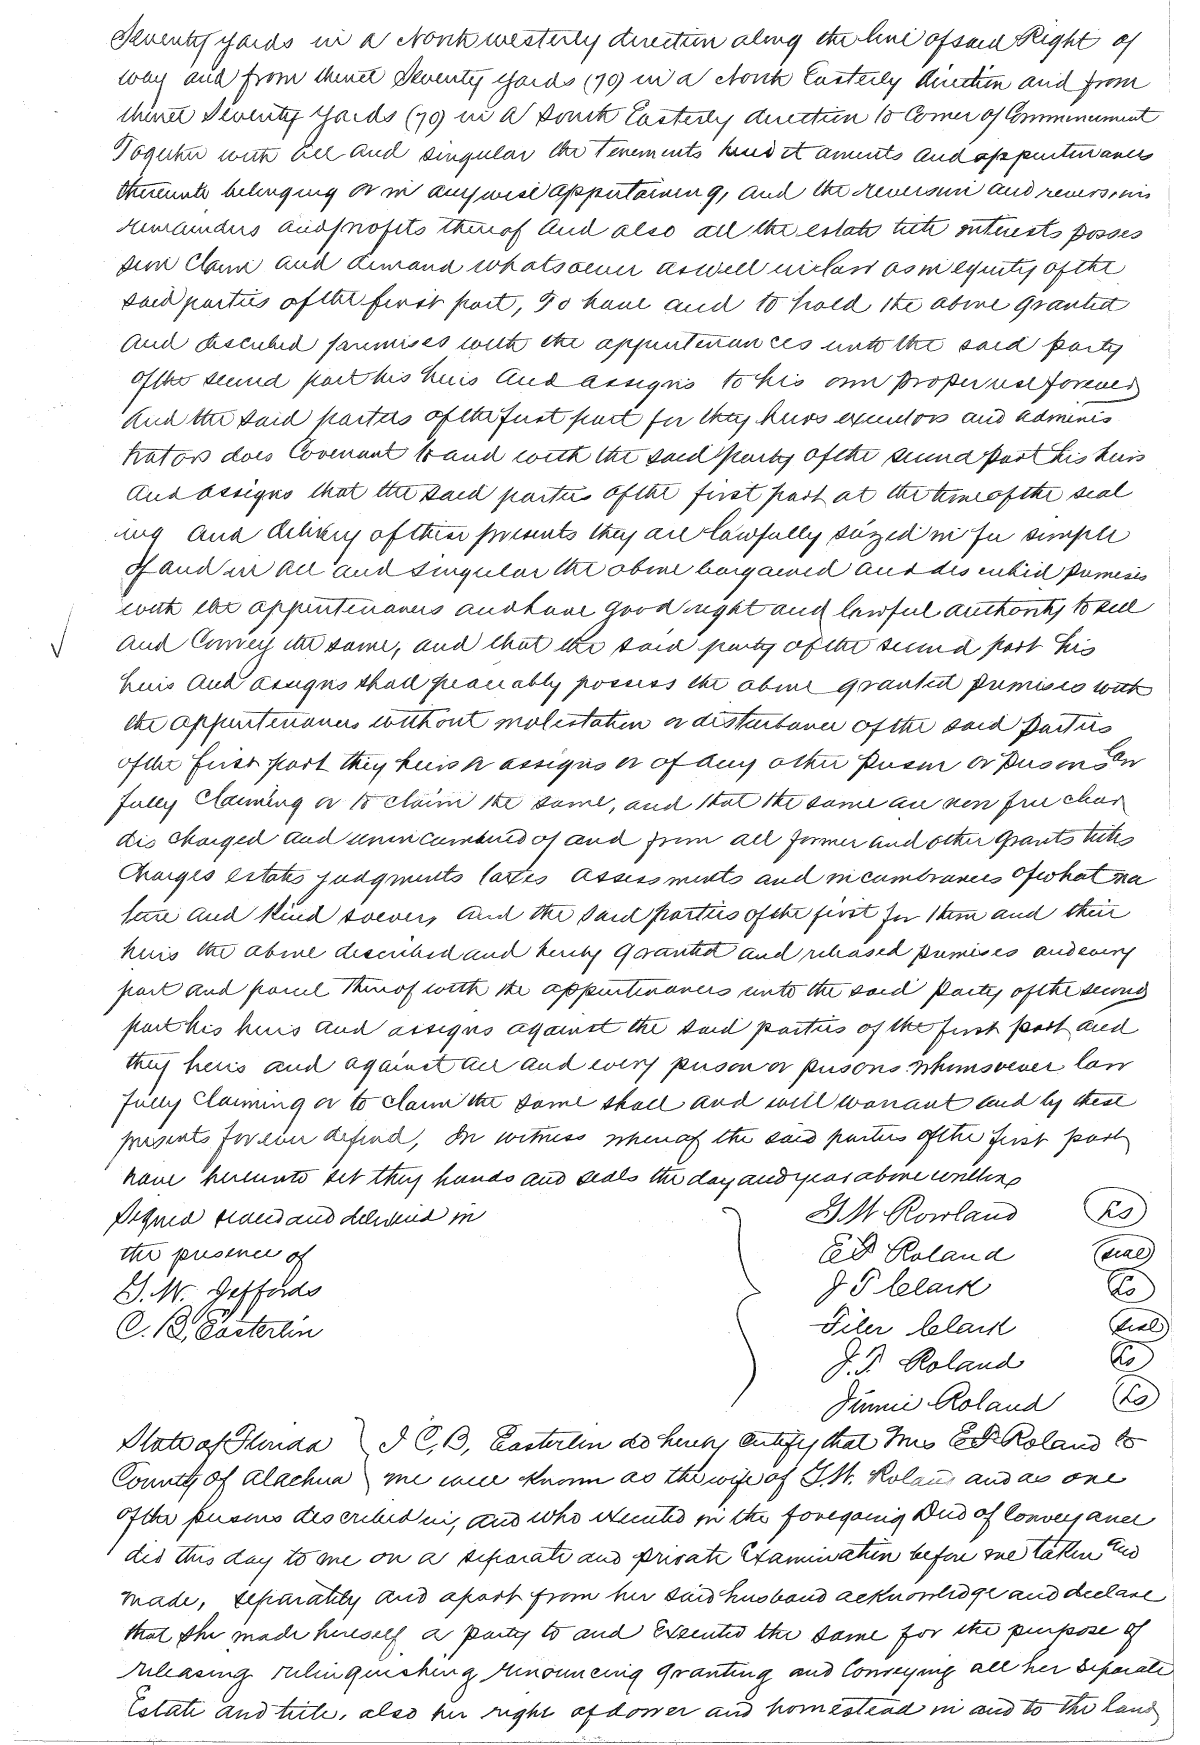 Seventy yards in a North westerly direction along the line of said Right of
way and from thence Seventy yards (70) in a North Easterly direction and from
thence Seventy yards (70) in a South Easterly direction to Corner of Commencement
Together with all and singular the tenements heredit aments and appurtenances
thereunto belonging or in anywise appertaining, and the reversion and reversions
remainders and profits thereof and also all the estate title interests posses
sion claim and demand whatsoever as well in law as in equity of the
said parties of the first part, To have and to hold the above granted
and described premises with the appurtenances unto the said party
of the second part his heirs and assigns to his own proper use forever
And the said parties of the first part for they heirs executors and adminis
trators does Covenant to and with the said party of the second part his heirs
and assigns that the said parties of the first part at the time of the seal
ing and delivery of these presents they are lawfully seized in fee simple
of and in all and singular the above bargained and described premises
with the appurtenances and have good right and lawful authority to sell
and Convey the same, and that the said party of the second part his
heirs and assigns shall peaceably possess the above granted premises with
the appurtenances without molestation or disturbance of the said parties
of the first part they heirs or assigns or of any other person or persons law
fully claiming or to claim the same, and that the same are now free clear
discharged and unincumbered of and from all former and other grants titles
Charges estates judgments taxes assessments and incumbrances of what na
ture and kind soever, and the said parties of the first for them and their
heirs the above described and hereby granted and released premises and every
part and parcel thereof with the appurtenances unto the said Party of the second
part his heirs and assigns against the said parties of the first part and
they heirs and against all and every person or persons whomsoever law
fully claiming or to claim the same shall and will warrant and by these
presents forever defend, In witness whereof the said parties of the first part
have hereunto set they hands and seals the day and year above written
Signed sealed and delivered in G W Rowland LS
the presence of E P Roland seal
G. W. Jeffords J T Clark LS
C. B. Easterlin Tiler Clark seal
J. T. Roland LS
Jinnie Roland LS
State of Florida I C, B, Easterlin do hereby certify that Mrs E P Roland to
County of Alachua me well known as the wife of G. W. Roland and as one
of the persons described in, and who executed in the foregoing Deed of Conveyance
did this day to me on a separate and private Examination before me taken and
made, separately and apart from her said husband acknowledge and declare
that she made herself a party to and Executed the same for the purpose of
releasing relinquishing renouncing granting and Conveying all her separate
Estate and title, also her right of dower and homestead in and to the land